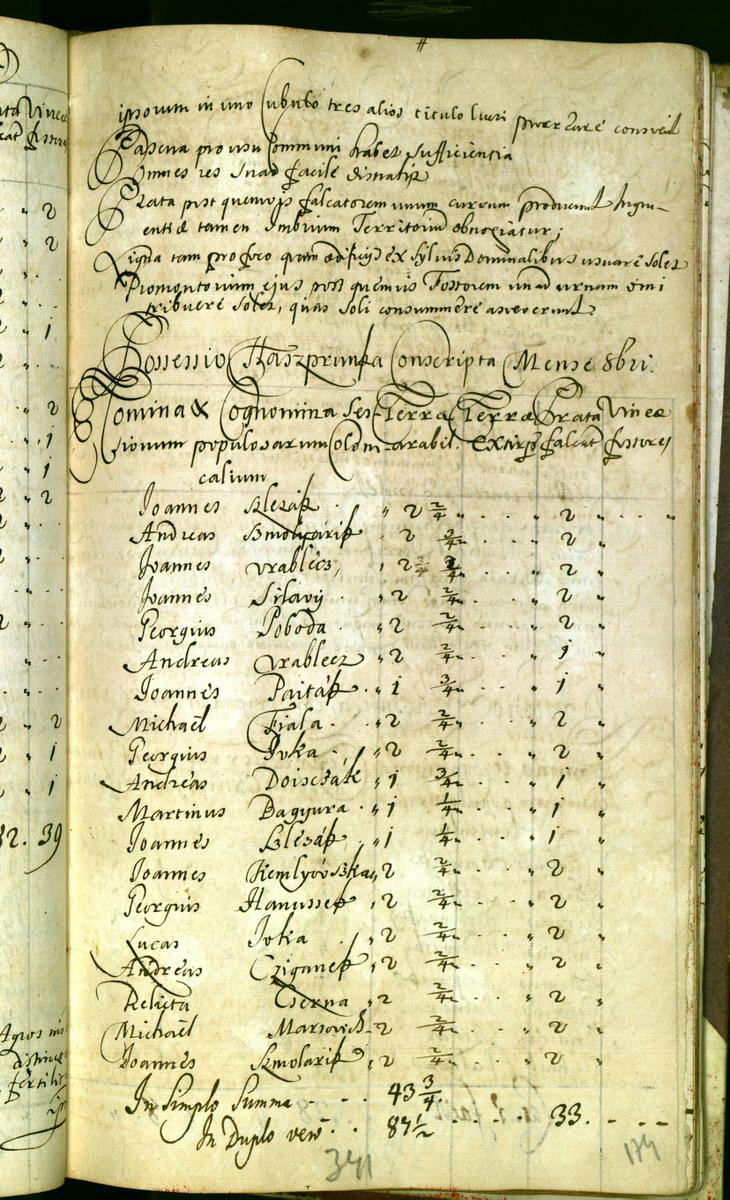 #
ipsorum in uno Cubulo tres alios titulo liuri consveit
Pascua pro usu Communi habet Sufficientia
Omnes res Suas facile distrahit
Prata post quemvis falcatorem unum currum producunt
tamen Imbrium Territorium obnoxiatur;
Ligna tam pro foco quam ædificijs ex Sylvis Dominalibus usuare Solet
Promontorium ejus post quemvis Fossorem unam urnam vini
tribuere Solet, quas Soli consummere asseverunt.
Possessio Haszprunka Conscripta Mense 8bri.
Nomina & Cognomina Ses- Terræ Terræ Prata Vineæ
sionum populosarum Colon- arabil. Extirp falcat fossores
calium
Joannes Szlezák „ 2 2/4 „ 2 „
Andreas Szmolyarik 2 2/4 „ 2 „
Joannes Vrablecz, 2 2/4 „ 2 „
Joannes Sitavÿ „ 2 2/4 „ 2 „
Georgius Poboda „ 2 2/4 „ 2 „
Andreas Vrablecz „ 2 2/4 „ 1 „
Joannes Paiták „ 1 3/4 „ 1 „
Michaël Fiala „ 2 2/4 „ 2 „
Georgius Ivka „ 2 2/4 „ 2 „
Andreas Doisczák „ 1 3/4 „ 1 „
Martinus Bagyura „ 1 1/4 „ 1 „
Joannes Szlezák „ 1 1/4 „ 1 „
Joannes Kemlyovszka „ 2 2/4 „ 2 „
Georgius Hanussek „ 2 2/4 „ 2 „
Lucas Ivka „ 2 2/4 „ 2 „
Andreas Cziganek „ 2 2/4 „ 2 „
Relicta Cserna „ 2 2/4 „ 2 „
Michaël Marsovich 2 2/4 „ 2 „
Joannes Szmolarik „ 2 2/4 „ 2 „
In Simplo Summa 43 3/4.
In Duplo vero 87 1/2 33.
341
174